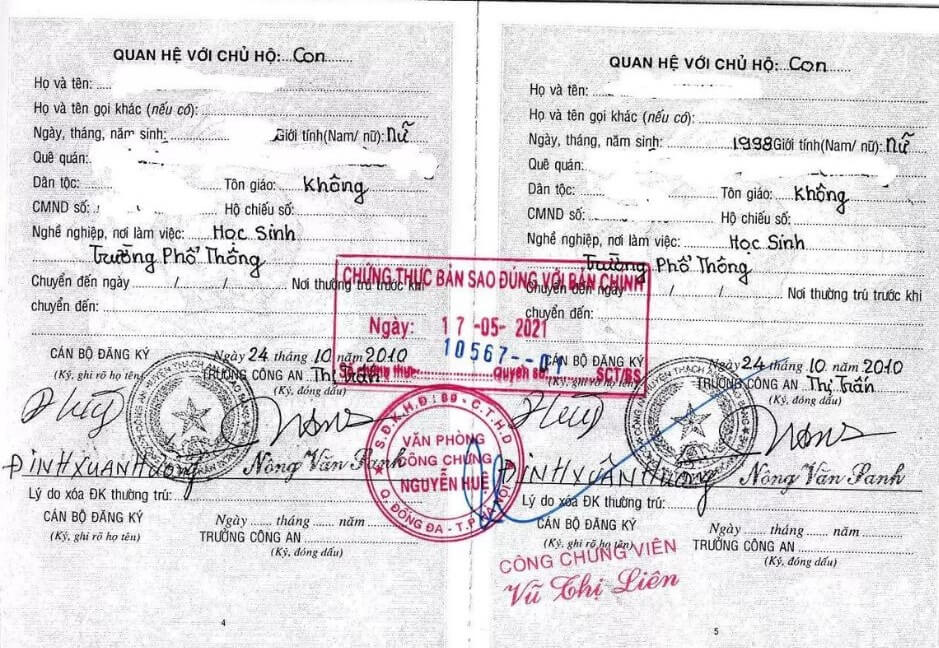 QUAN HỆ VỚI CHỦ HỘ:...Con........
Họ và tên:....
Họ và tên gọi khác (nếu có):
Ngày, tháng, năm sinh: Giới tính(Nam/ nữ): Nữ
Quê quán:
Dân tộc: Tôn giáo: Không
CMND số: Hộ chiếu số:
Nghề nghiệp, nơi làm việc: Học Sinh
Trường Phổ Thông
Chuyển đến ngày ....../....../...... Nơi thường trú trước khi
chuyển đến:
CÁN BỘ ĐĂNG KÝ
(Ký, ghi rõ họ tên)
Ngày 24 tháng 10 năm 2010
TRƯỞNG CÔNG AN Thị Trấn
(Ký, đóng dấu)
ĐINH XUÂN HƯƠNG Nông Văn Panh
Lý do xóa ĐK thường trú:
CÁN BỘ ĐĂNG KÝ
(Ký, ghi rõ họ tên)
Ngày ...... tháng ...... năm ......
TRƯỞNG CÔNG AN
(Ký, đóng dấu)
4
CHỨNG THỰC BẢN SAO ĐÚNG VỚI BẢN CHÍNH
Ngày: 17-05-2021
10567--01
Số chứng thực Quyển số SCT/BS
S.Đ.K.H.Đ: 89 - C.T.H.D
VĂN PHÒNG
CÔNG CHỨNG
NGUYỄN HUỆ
Q. ĐỐNG ĐA - T.P HÀ NỘI
QUAN HỆ VỚI CHỦ HỘ:...Con........
Họ và tên:
Họ và tên gọi khác (nếu có):
Ngày, tháng, năm sinh: 1998 Giới tính(Nam/ nữ): Nữ
Quê quán:
Dân tộc: Tôn giáo: Không
CMND số: Hộ chiếu số:
Nghề nghiệp, nơi làm việc: Học Sinh
Trường Phổ Thông
Chuyển đến ngày ....../....../...... Nơi thường trú trước khi
chuyển đến:
CÁN BỘ ĐĂNG KÝ
(Ký, ghi rõ họ tên)
Ngày 24 tháng 10 năm 2010
TRƯỞNG CÔNG AN Thị Trấn
(Ký, đóng dấu)
ĐINH XUÂN HƯƠNG Nông Văn Panh
Lý do xóa ĐK thường trú:
CÁN BỘ ĐĂNG KÝ
(Ký, ghi rõ họ tên)
Ngày ...... tháng ...... năm ......
TRƯỞNG CÔNG AN
(Ký, đóng dấu)
CÔNG CHỨNG VIÊN
Vũ Thị Liên
5